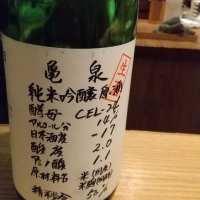 亀泉
生
純米吟醸原酒
酵母 CEL-24
アルコール分 14%
日本酒度 -17
酸度 2.0
アミノ酸 1.1
原材料名 米(国産)
米麹(国産米)
精米歩合 50%